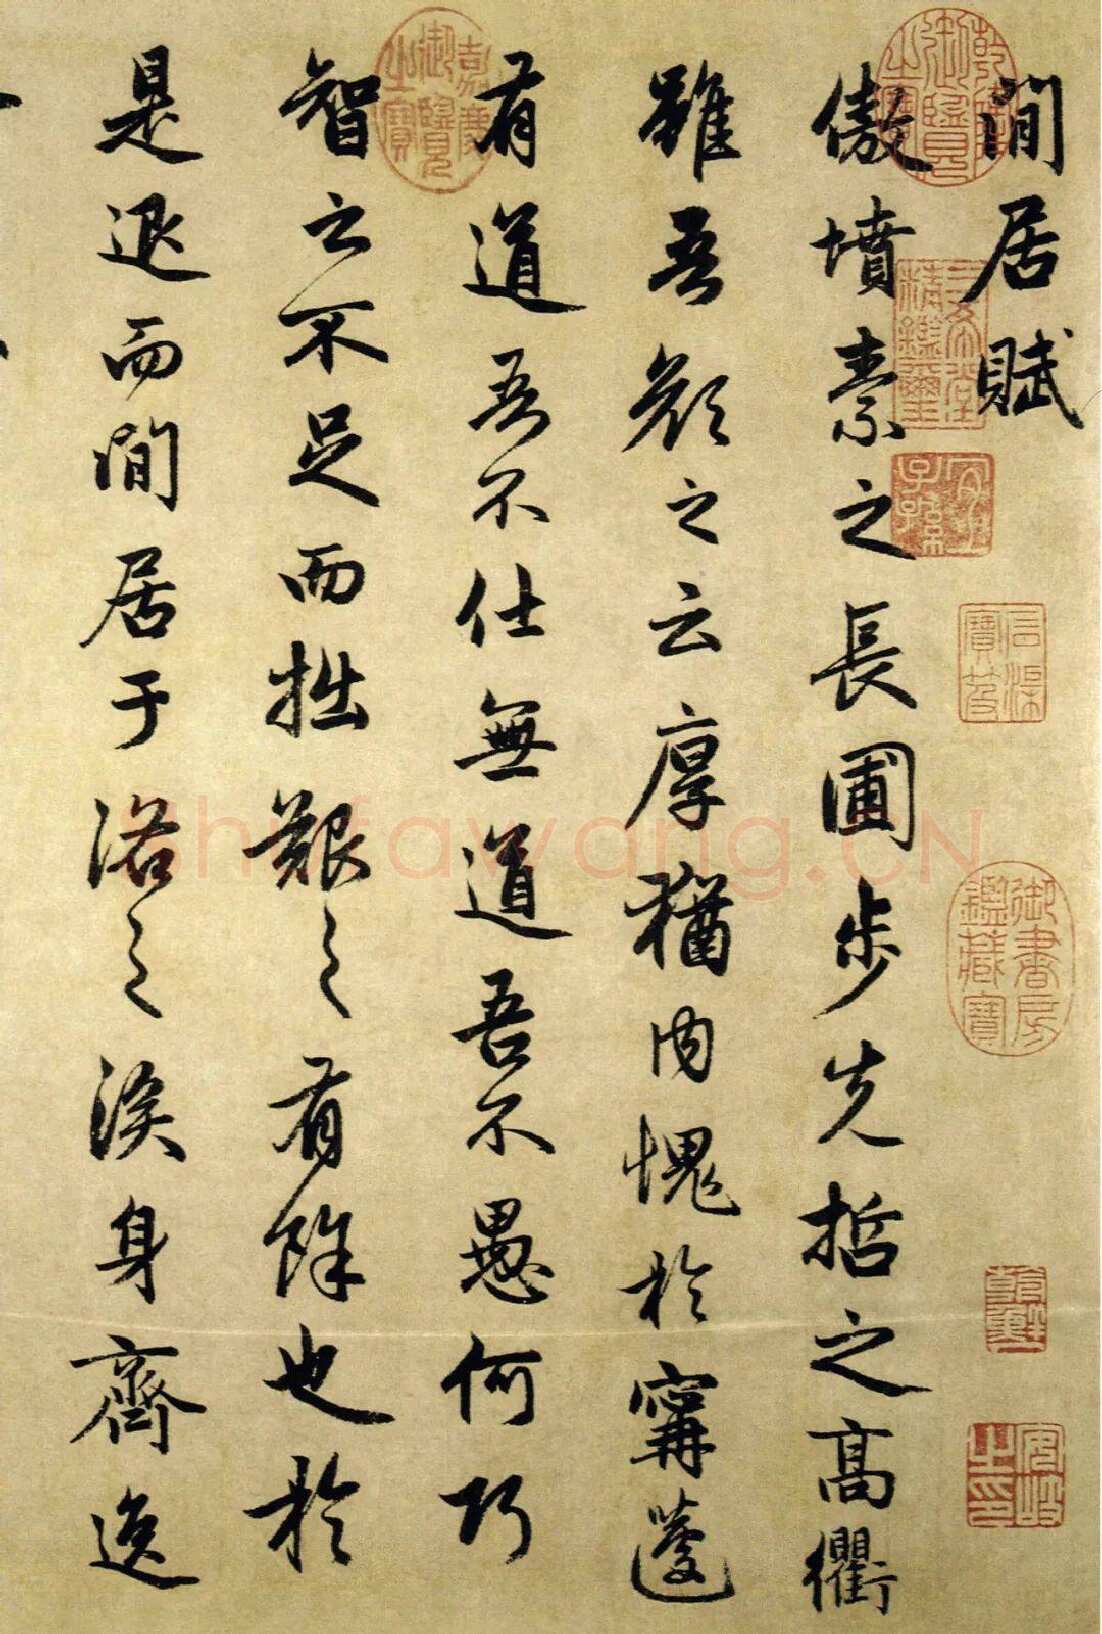 閒居賦
傲墳素之長圃步先哲之高衢
雖吾顏之云厚猶內愧於甯蘧
有道吾不仕無道吾不愚何巧
智之不足而拙艱之有餘也於
是退而閒居于洛之涘身齊逸
乾隆御覽之寶
嘉慶御覽之寶
三希堂精鑑璽
宜子孫
石渠寶笈
御書房鑑藏寶
乾隆鑑賞
安岐之印
shufawang.CN